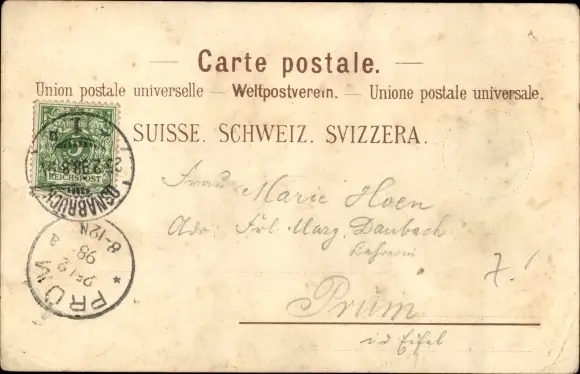 Carte postale.
Union postale universelle — Weltpostverein. — Unione postale universale.
SUISSE. SCHWEIZ. SVIZZERA.
REICHSPOST
OSNABRÜCK
1
Frau Marie Hoen
Adr: Frl Marg. Daubach
Lehrerin
Prüm
i d Eifel
7.!
PRÜM
98
8-12N